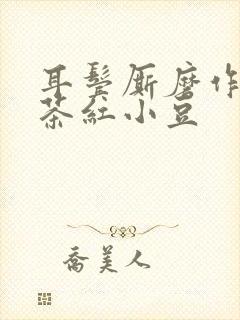 耳鬓厮磨作
茶红小豆
乔美人